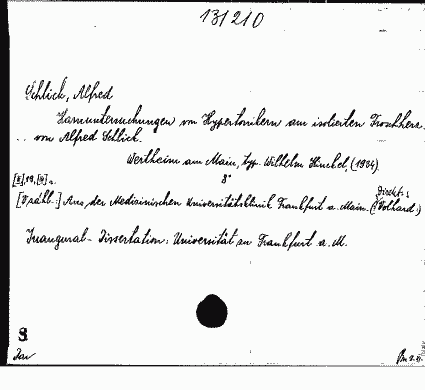 131210
Schlick, Alfred
Harnuntersuchungen von Hypertonikern am isolierten Froschherz.
... von Alfred Schlick.
Wertheim am Main, typ. Wilhelm Hinckel, (1934)
8°
[8], 19, [4] s.
[Verähl.:] Aus der Medizinischen Universitätsklinik Frankfurt a. Main. (Direkt.: Volhard.)
Inaugural-Dissertation: Universität zu Frankfurt a. M.
S